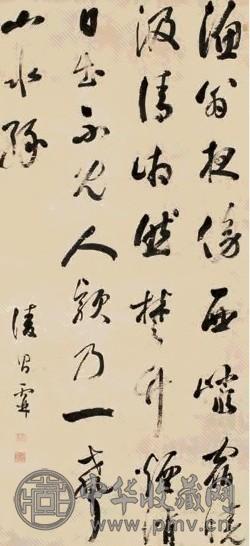 漁翁夜傍西巖宿曉
汲清湘然楚竹煙銷
日出不見人欸乃一聲
山水綠
中华收藏网
www.pmv.cn